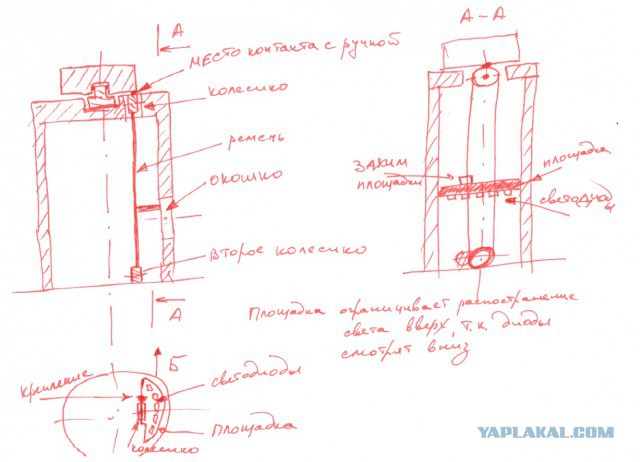 А
МЕСТО КОНТАКТА С РУЧКОЙ
КОЛЕСИКО
РЕМЕНЬ
ОКОШКО
ВТОРОЕ КОЛЕСИКО
А
А-А
ЗАЖИМ
ПЛОЩАДКИ
ПЛОЩАДКА
СВЕТОДИОДЫ
ПЛОЩАДКА ОГРАНИЧИВАЕТ РАСПОСТРАНЕНИЕ
СВЕТА ВВЕРХ, Т.К. ДИОДЫ
СМОТРЯТ ВНИЗ
Б
КРЕПЛЕНИЕ
СВЕТОДИОДЫ
ПЛОЩАДКА
КОЛЕСИКО
YAPLAKAL.COM